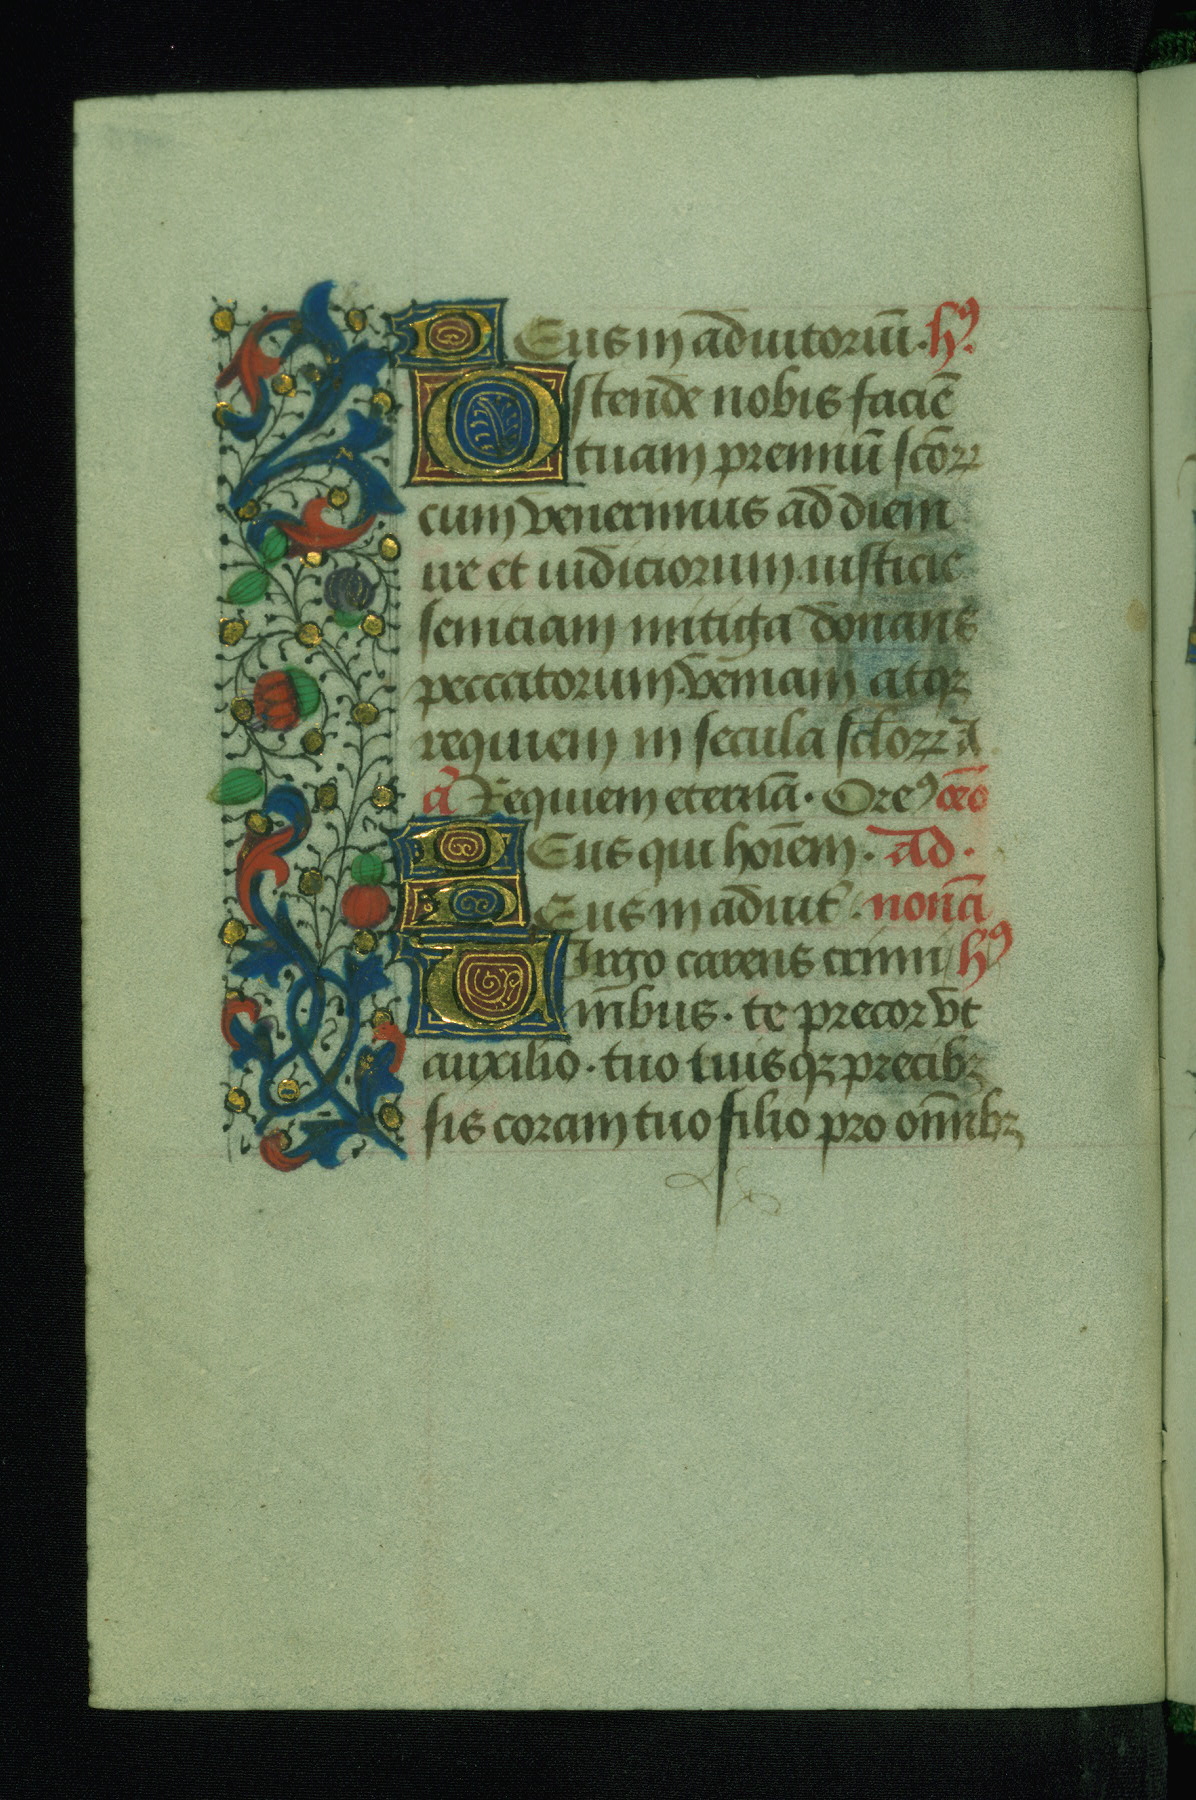 Deus in adiutoriū. hꝰ.
Ostende nobis faciē
tuam premiū sc̄oꝝ
cum venerimus ad diem
ire et iudiciorum. iusticie
seuiciam mitiga donans
peccatorum. veniam atqꝫ
requiem in secula sc̄loꝝ A
a᷒ Requiem eternā. Oreꝰ oēo
Deus qui hoīem. Ad.
Deus in adiut̄. nonā
Uirgo carens crimi hꝰ
nibus. te precor vt
auxilio. tuo tuisqꝫ precibꝫ
sis coram tuo filio pro om̄ibꝫ